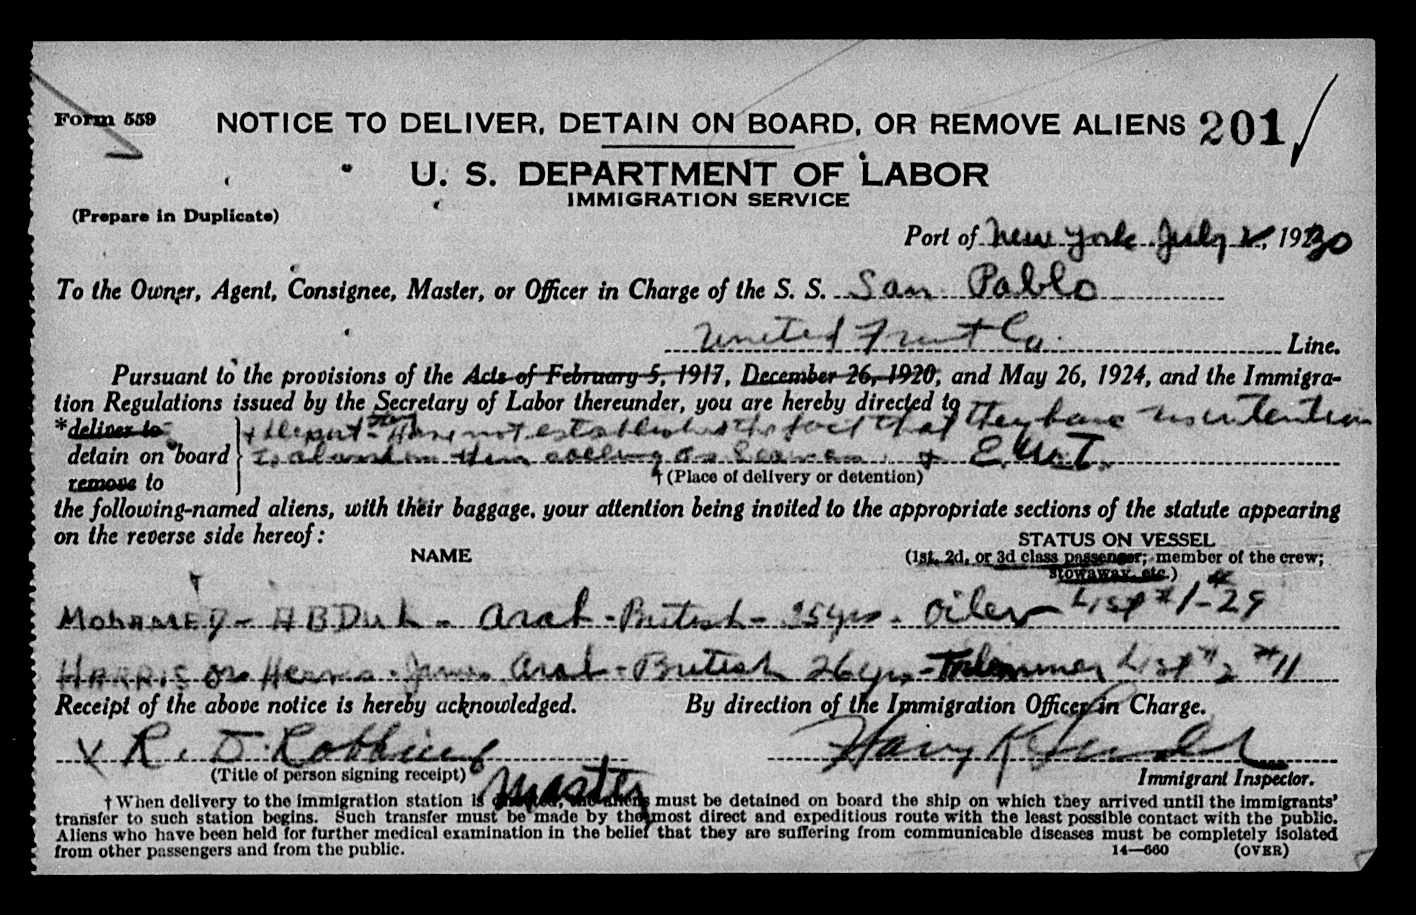 Form 559 NOTICE TO DELIVER, DETAIN ON BOARD, OR REMOVE ALIENS 201
U. S. DEPARTMENT OF LABOR
IMMIGRATION SERVICE
(Prepare in Duplicate)
Port of New York July 2, 1930
To the Owner, Agent, Consignee, Master, or Officer in Charge of the S. S. San Pablo
United Fruit Co. Line.
Pursuant to the provisions of the Acts of February 5, 1917, December 26, 1920, and May 26, 1924, and the Immigra-
tion Regulations issued by the Secretary of Labor thereunder, you are hereby directed to they have no intention
*deliver to & deport they have not established the fact that
detain on board to abandon their calling as seamen. + E.W.T.
remove to † (Place of delivery or detention)
the following-named aliens, with their baggage, your attention being invited to the appropriate sections of the statute appearing
on the reverse side hereof:
STATUS ON VESSEL
NAME (1st, 2d, or 3d class passenger; member of the crew;
stowaway, etc.)
MOHAMED - ABDUL - Arab - British - yrs - Oiler List #1 - #29
HARRIS or James Arab - British 26 yrs - List #2 #11
Receipt of the above notice is hereby acknowledged. By direction of the Immigration Officer in Charge.
R. D. Robbins Harry
(Title of person signing receipt) Master Immigrant Inspector.
† When delivery to the immigration station is the aliens must be detained on board the ship on which they arrived until the immigrants'
transfer to such station begins. Such transfer must be made by the most direct and expeditious route with the least possible contact with the public.
Aliens who have been held for further medical examination in the belief that they are suffering from communicable diseases must be completely isolated
from other passengers and from the public. 14—660 (OVER)